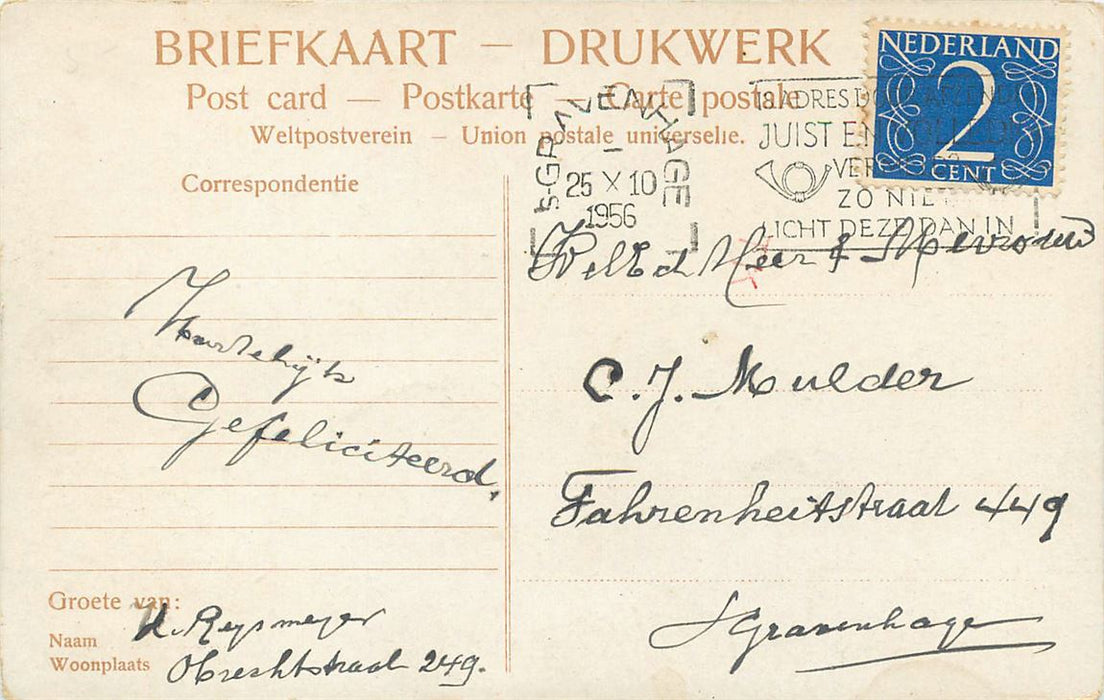 BRIEFKAART — DRUKWERK
Post card — Postkarte — Carte postale
Weltpostverein — Union postale universelle.
NEDERLAND
2
CENT
's-GRAVENHAGE
25 X 10
1956
IS ADRES
JUIST EN VOLLEDIG
VER
ZO NIET
LICHT DEZE DAN IN
Correspondentie
Hartelijk
Gefeliciteerd.
Groete van:
Naam H. Reysmeyer
Woonplaats Obrechtstraat 249.
WelEd Heer & Mevrouw
C. J. Mulder
Fahrenheitstraat 449
s Gravenhage